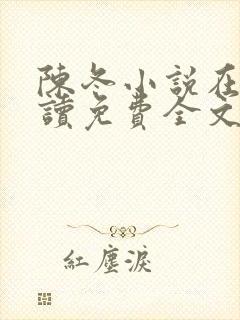 陳冬小說在
讀免費全文
紅塵淚